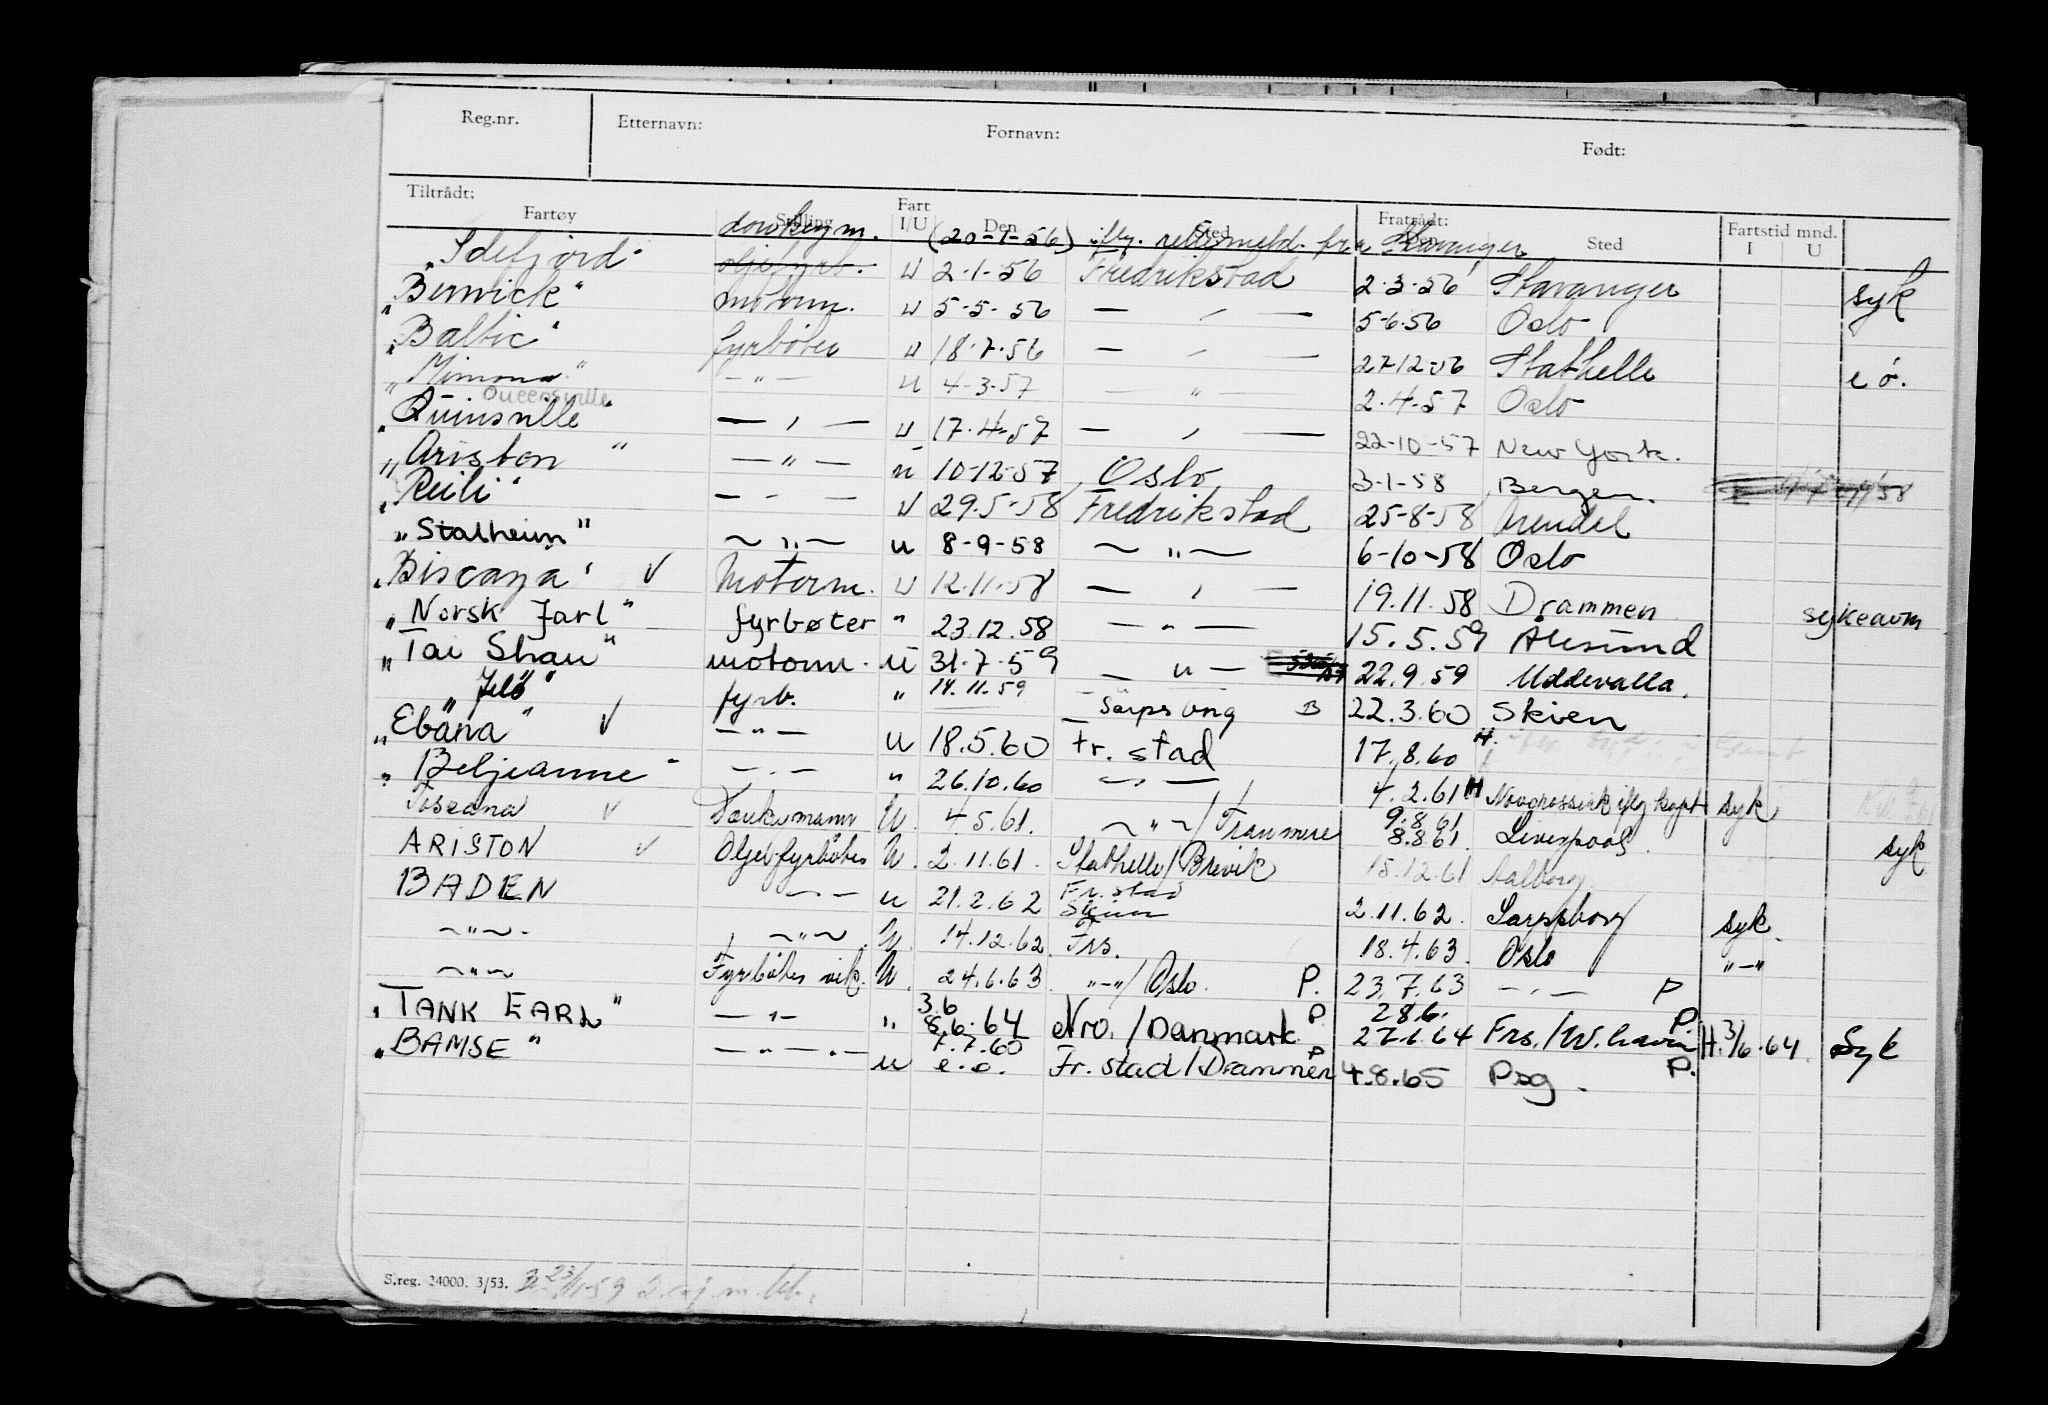 Reg.nr. Etternavn: Fornavn: Født:
Tiltrådt: Fratrådt: Fartstid mnd.
Fartøy Stilling Fart I/U Den Sted Den Sted I U
donkeym. (20-1-56) iflg. rettsmeld. fra Stavanger
"Idefjord" oljefyrb. u 2-1-56 Fredrikstad 2-3-56 Stavanger syk
"Berwick" motorm. u 5-5-56 — " — 5-6-56 Oslo
"Baltic" fyrbøter u 18-7-56 — " — 27-12-56 Stathelle e ö.
"Mimona" — " — u 4-3-57 " 2-4-57 Oslo
Queensville
"Quinsville" — " — u 17-4-57 — " — 22-10-57 New York.
"Ariston" — " — u 10-12-57 Oslo 3-1-58 Bergen.
"Reili" — " — u 29.5-58 Fredrikstad 25-8-58 Arendal
"Stalheim" — " — u 8-9-58 — " — 6-10-58 Oslo
"Biscaya" ✓ Motorm. u 12.11-58 — " — 19.11.58 Drammen sykeavm
"Norsk Jarl" fyrbøter " 23.12.58 — " — 15.5.59 Ålesund
"Tai Shan" motorm. u 31.7.59 — " — 22.9.59 Uddevalla.
"Jelö" fyrb. " 14.11.59 Sarpsborg B 22.3.60 Skien
"Ebana" ✓ — " — u 18.5.60 Fr. stad 17.8.60 H.
"Beljeanne" — " — " 26.10.60 — " — 4.2.61 H Novorossisk iflg kapt syk
Toscana ✓ Donkeymann U. 4.5.61. — " — / Tranmere 9.8.61 8.8.61. Liverpool. syk
ARISTON ✓ Oljefyrbøter U. 2.11.61. Stathelle/Brevik 15.12.61 Aalborg
BADEN — " — u 21.2.62 Fr. stad Skien 2.11.62. Sarpsborg syk.
— " — . — " — . U. 14.12.62 Frs. 18.4.63. Oslo " — "
— " — Fyrbøter vik. U. 24.6.63. " — " / Oslo. P. 23.7.63 — " — P
"TANK EARL" — " — " 3.6 8.6.64 Nro. / Danmark P. 28.6. 27.1.64 Frs. / W. havn P. H. 3/6.64. Syk
"BAMSE" — " — " — u 7.7.60 e.o. Fr. stad / Drammen P 4.8.65 Psg. P.
S.reg. 24000. 3/53. 23/11-59